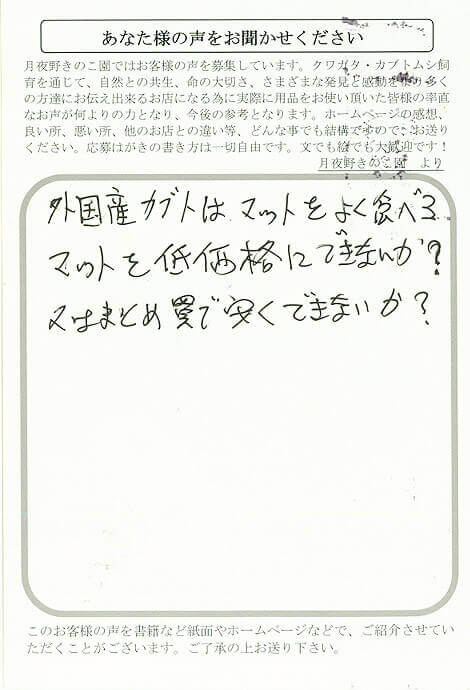 あなた様の声をお聞かせください
月夜野きのこ園ではお客様の声を募集しています。クワガタ・カブトムシ飼
育を通じて、自然との共生、命の大切さ、さまざまな発見と感動を より多く
の方達にお伝え出来るお店になる為に実際に用品をお使い頂いた皆様の率直
なお声が何よりの力となり、今後の参考となります。ホームページの感想、
良い所、悪い所、他のお店との違い等、どんな事でも結構ですので、お送り
ください。応募はがきの書き方は一切自由です。文でも絵でも大歓迎です!
月夜野きのこ園 より
外国産カブトは マットをよく食べる
マットを低価格にできないか?
又はまとめ買で安くできないか?
このお客様の声を書籍など紙面やホームページなどで、ご紹介させてい
ただくことがございます。ご了承の上お送り下さい。